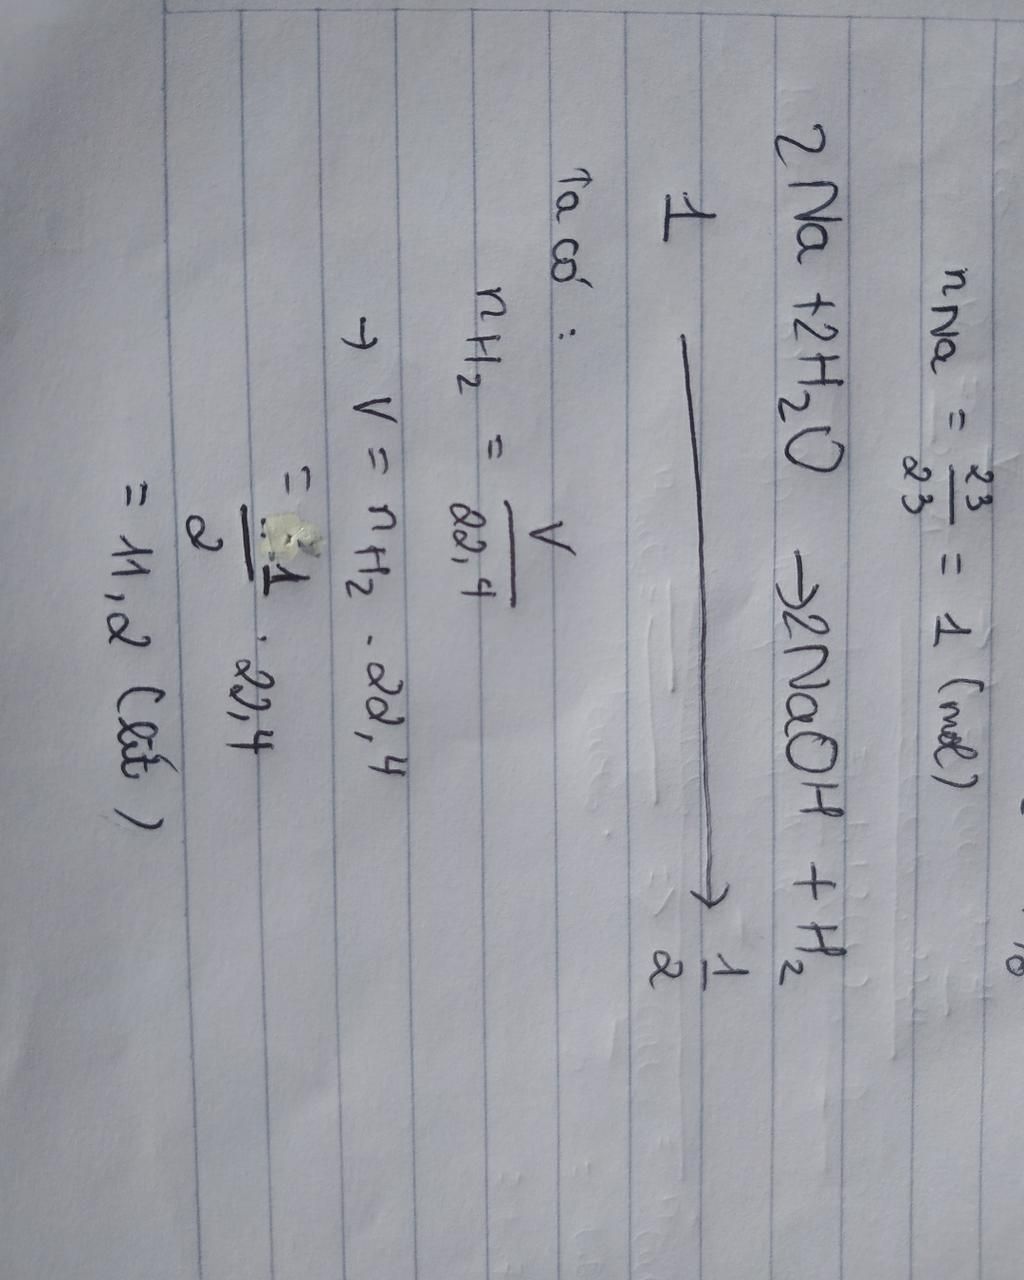 n Na = 23/23 = 1 (mol)
2Na + 2H₂O → 2NaOH + H₂
1 → 1/2
Ta có :
n H₂ = V/22,4
→ V = n H₂ . 22,4
= 1/2 . 22,4
= 11,2 (lít)